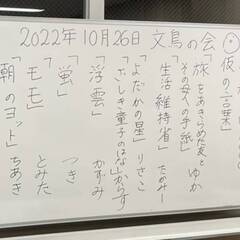 2022年10月26日 文鳥の会
夜の「言葉」
「旅をあきらめた友と
その母への手紙」 ゆか
「生活維持省」 たみー
「よだかの星」 りさこ
「ざしき童子のはなし」 からす
「浮雲」 かすみ
「蛍」 つき
「モモ」 とみた
「朝のヨット」 ちあき